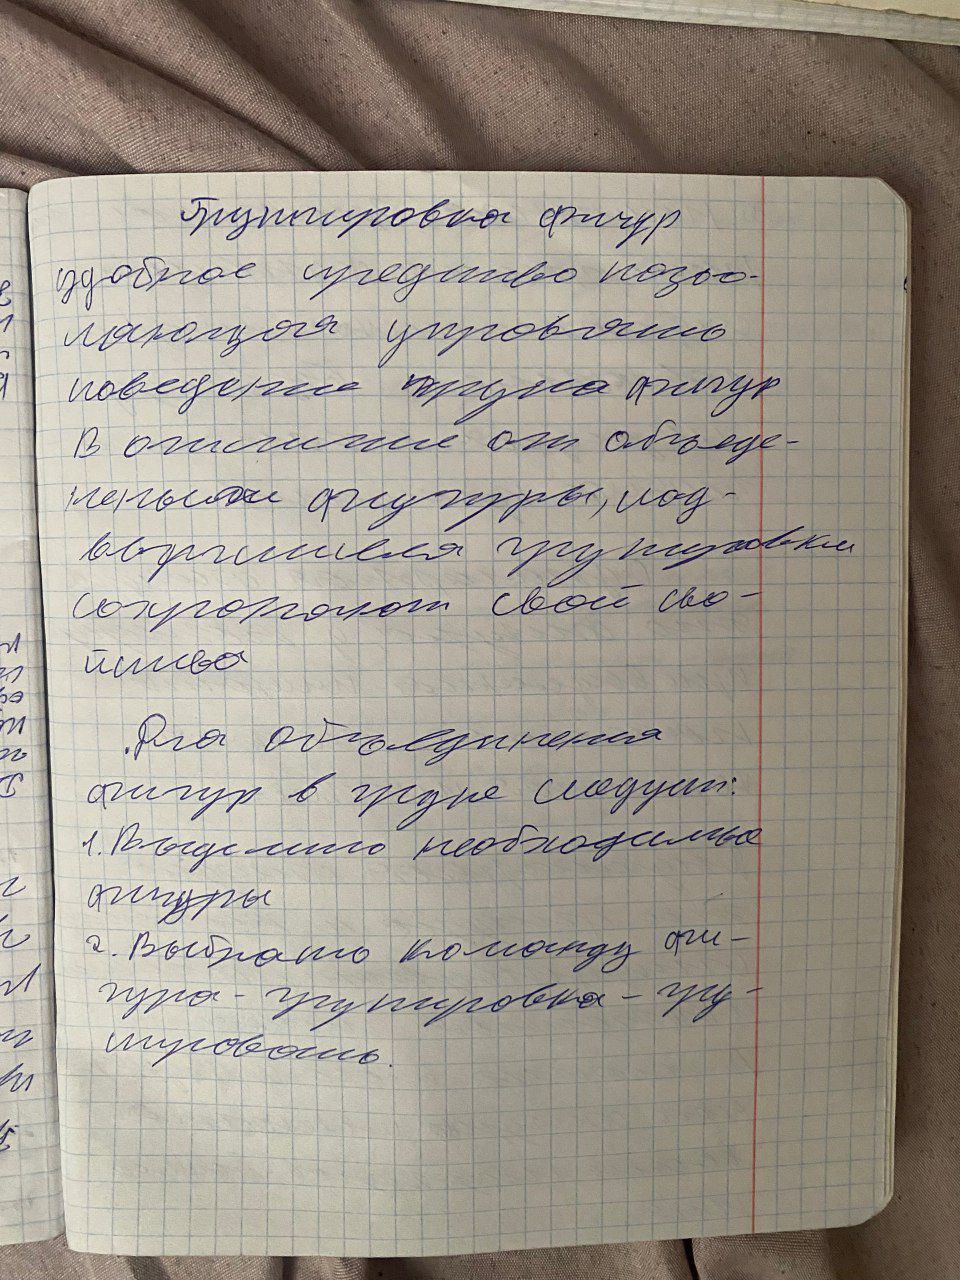 Группировка фигур
удобное средство позво-
ляющая управлять
поведение група фигур
В отличие от объеде-
неныи фигуры, под-
вергшиеся групировки
сохроняют свой сво-
йства
Для объединения
фигур в групе следует:
1. Выделить необходимые
фигуры
2. Выбрать команду фи-
гура - групировка - гру-
пировать.